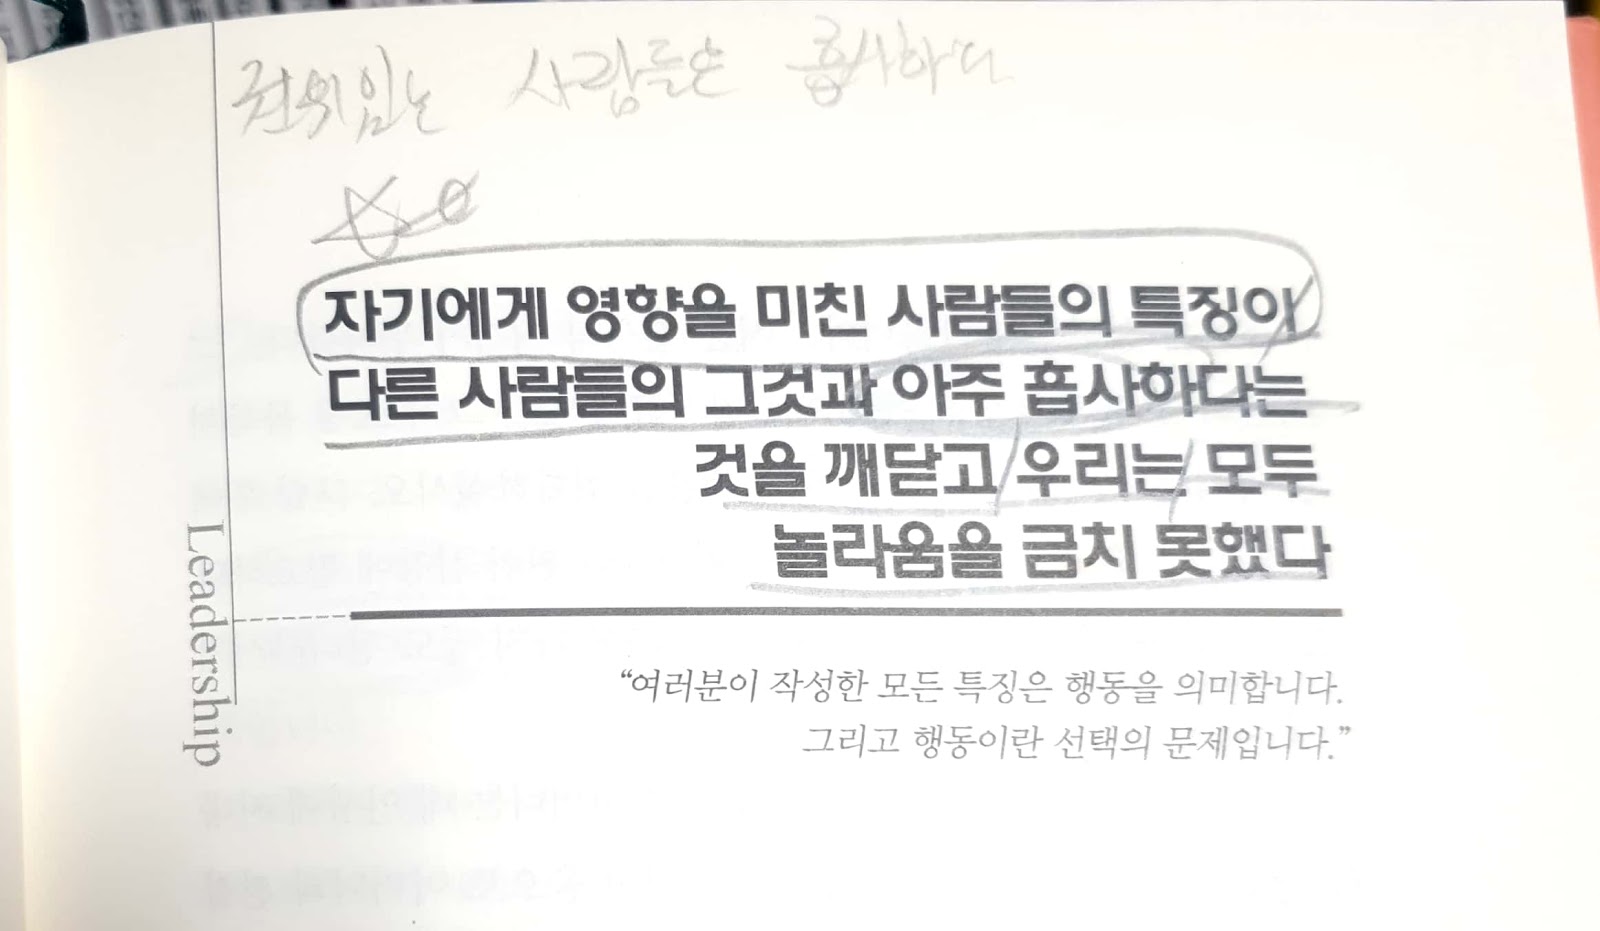 권위있는 사람들은 흡사하다
자기에게 영향을 미친 사람들의 특징이
다른 사람들의 그것과 아주 흡사하다는
것을 깨닫고 우리는 모두
놀라움을 금치 못했다
Leadership
“여러분이 작성한 모든 특징은 행동을 의미합니다.
그리고 행동이란 선택의 문제입니다.”